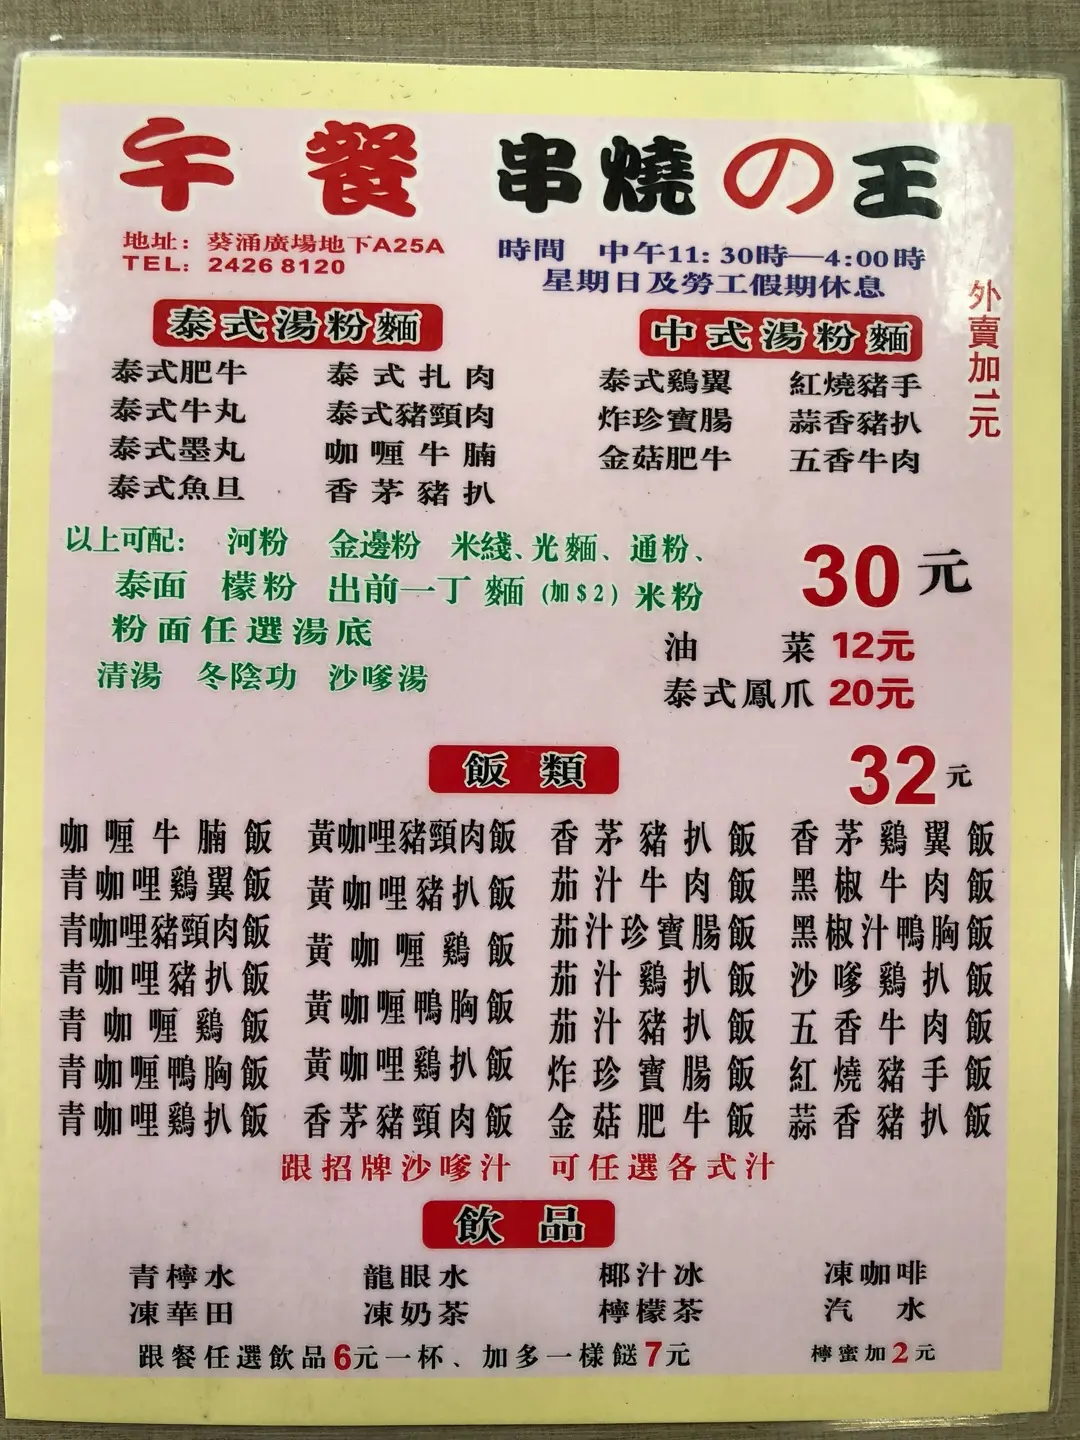 午餐 串燒の王
地址：葵涌廣場地下A25A
TEL: 2426 8120
時間 中午11:30時—4:00時
星期日及勞工假期休息
泰式湯粉麵
泰式肥牛 泰式扎肉
泰式牛丸 泰式豬頸肉
泰式墨丸 咖喱牛腩
泰式魚旦 香茅豬扒
中式湯粉麵
泰式鷄翼 紅燒豬手
炸珍寶腸 蒜香豬扒
金菇肥牛 五香牛肉
外賣加二元
以上可配： 河粉 金邊粉 米綫、光麵、通粉、
泰面 檬粉 出前一丁麵(加$2) 米粉
粉面任選湯底
清湯 冬陰功 沙嗲湯
30元
油菜 12元
泰式鳳爪 20元
飯類
32元
咖喱牛腩飯 黃咖哩豬頸肉飯 香茅豬扒飯 香茅鷄翼飯
青咖哩鷄翼飯 黃咖哩豬扒飯 茄汁牛肉飯 黑椒牛肉飯
青咖哩豬頸肉飯 黃咖喱鷄飯 茄汁珍寶腸飯 黑椒汁鴨胸飯
青咖哩豬扒飯 黃咖喱鴨胸飯 茄汁鷄扒飯 沙嗲鷄扒飯
青咖喱鷄飯 黃咖哩鷄扒飯 茄汁豬扒飯 五香牛肉飯
青咖喱鴨胸飯 香茅豬頸肉飯 炸珍寶腸飯 紅燒豬手飯
青咖哩鷄扒飯 金菇肥牛飯 蒜香豬扒飯
跟招牌沙嗲汁 可任選各式汁
飲品
青檸水 龍眼水 椰汁冰 凍咖啡
凍華田 凍奶茶 檸檬茶 汽水
跟餐任選飲品6元一杯、加多一樣餸7元 檸蜜加2元